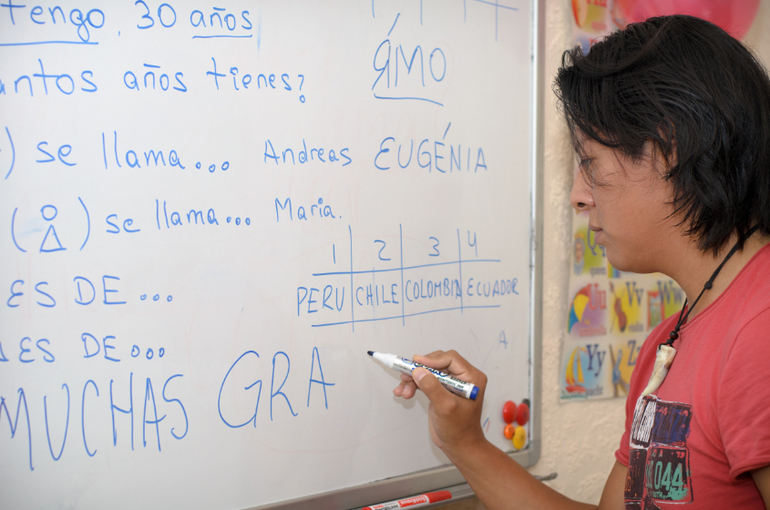 tengo, 30 años
años tienes?
ЯМО́
) se llama... Andreas EUGÉNIA
( ) se llama... Maria.
1 2 3 4
PERU CHILE COLOMBIA ECUADOR
ES DE...
ES DE...
A
MUCHAS GRA
Uu Vv
Yy Zz
044